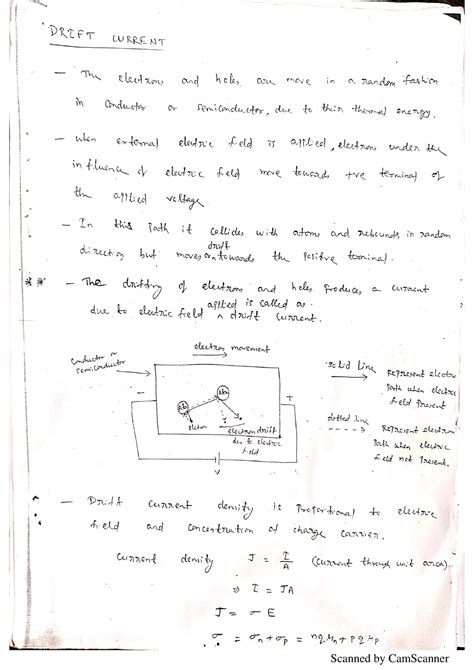 DRIFT CURRENT
— The electrons and holes are move in a random fashion
in conductor or semiconductor, due to their thermal energy.
— when external electric field is applied, electrons under the
influence of electric field move towards +ve terminal of
the applied voltage.
— In this path it collides with atoms and rebounds in random
direction but moves drift towards the positive terminal.
** — The drifting of electrons and holes produces a current
due to electric field applied is called as drift current.
electron movement
conductor or
semiconductor
−
+
electron
electron drift
due to electric
field
V
solid line
Represent electron
Path when electric
field present
dotted line
Represent electron
Path when electric
field not present.
— Drift current density is proportional to electric
field and concentration of charge carrier.
Current density J = I/A (current through unit area)
⇒ I = JA
J = σ E
σ = σn + σp = nqμn + pqμp
Scanned by CamScanner